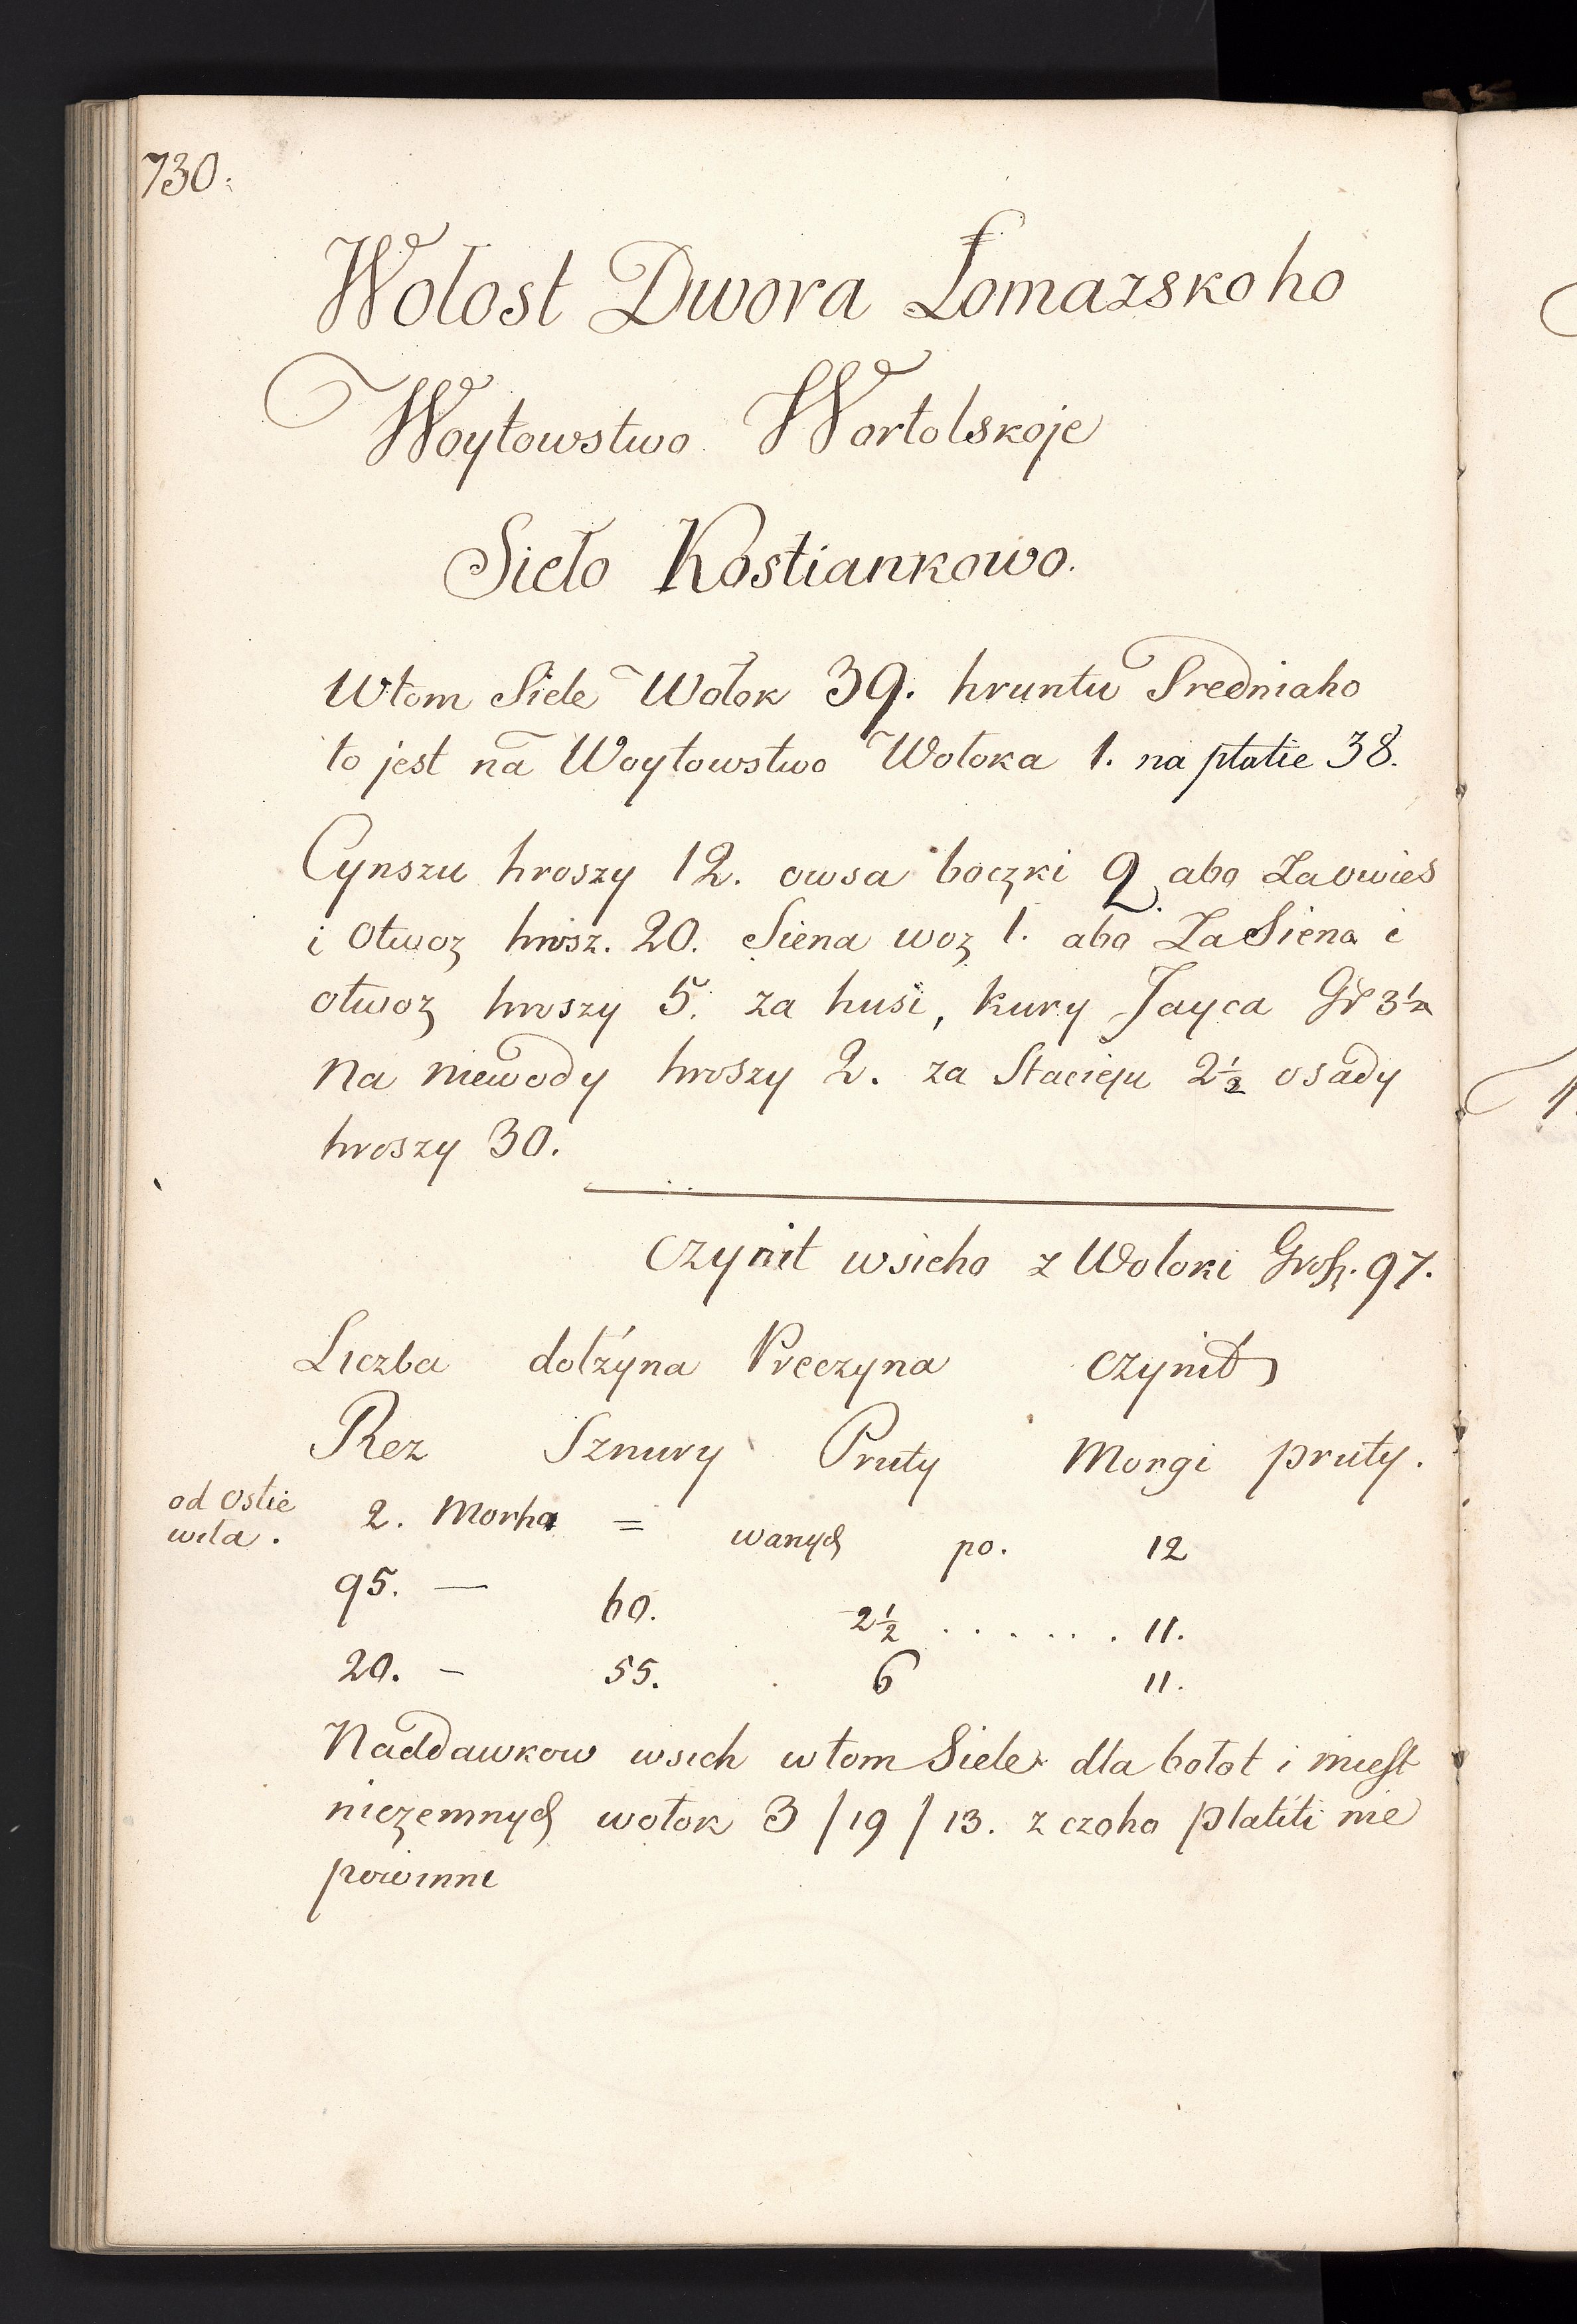 730.
Wolost Dwora Łomazskoho
Woytowstwo Wortolskoje
Sieło Kostiankowo.
Wtom Siele Wołok 39. hruntu Sredniaho
to jest na Woytowstwo Wołoka 1. na płatie 38.
Cynszu hroszy 12. owsa boczki 2. abo Zaowies
i otwoz hrosz. 20. Siena woz 1. abo Za Siena i
otwoz hroszy 5. za husi, kury Jayca Gr 3½
na niewody hroszy 2. za Stacieju 2½ osady
hroszy 30.
czynit wsieho z Wołoki Grosz. 97.
Liczba dołżyna Preczyna czynit
Rez Sznury Pruty Morgi pruty.
od Ostie 2. Morho = wanych po. 12
wila.
95. — 60. 2½ . . . . . . 11.
20. — 55. 6 11.
Naddawkow wsich wtom Siele dla bołot i miest
niezemnych wołok 3 / 19 / 13. z czoho płatiti nie
powinni